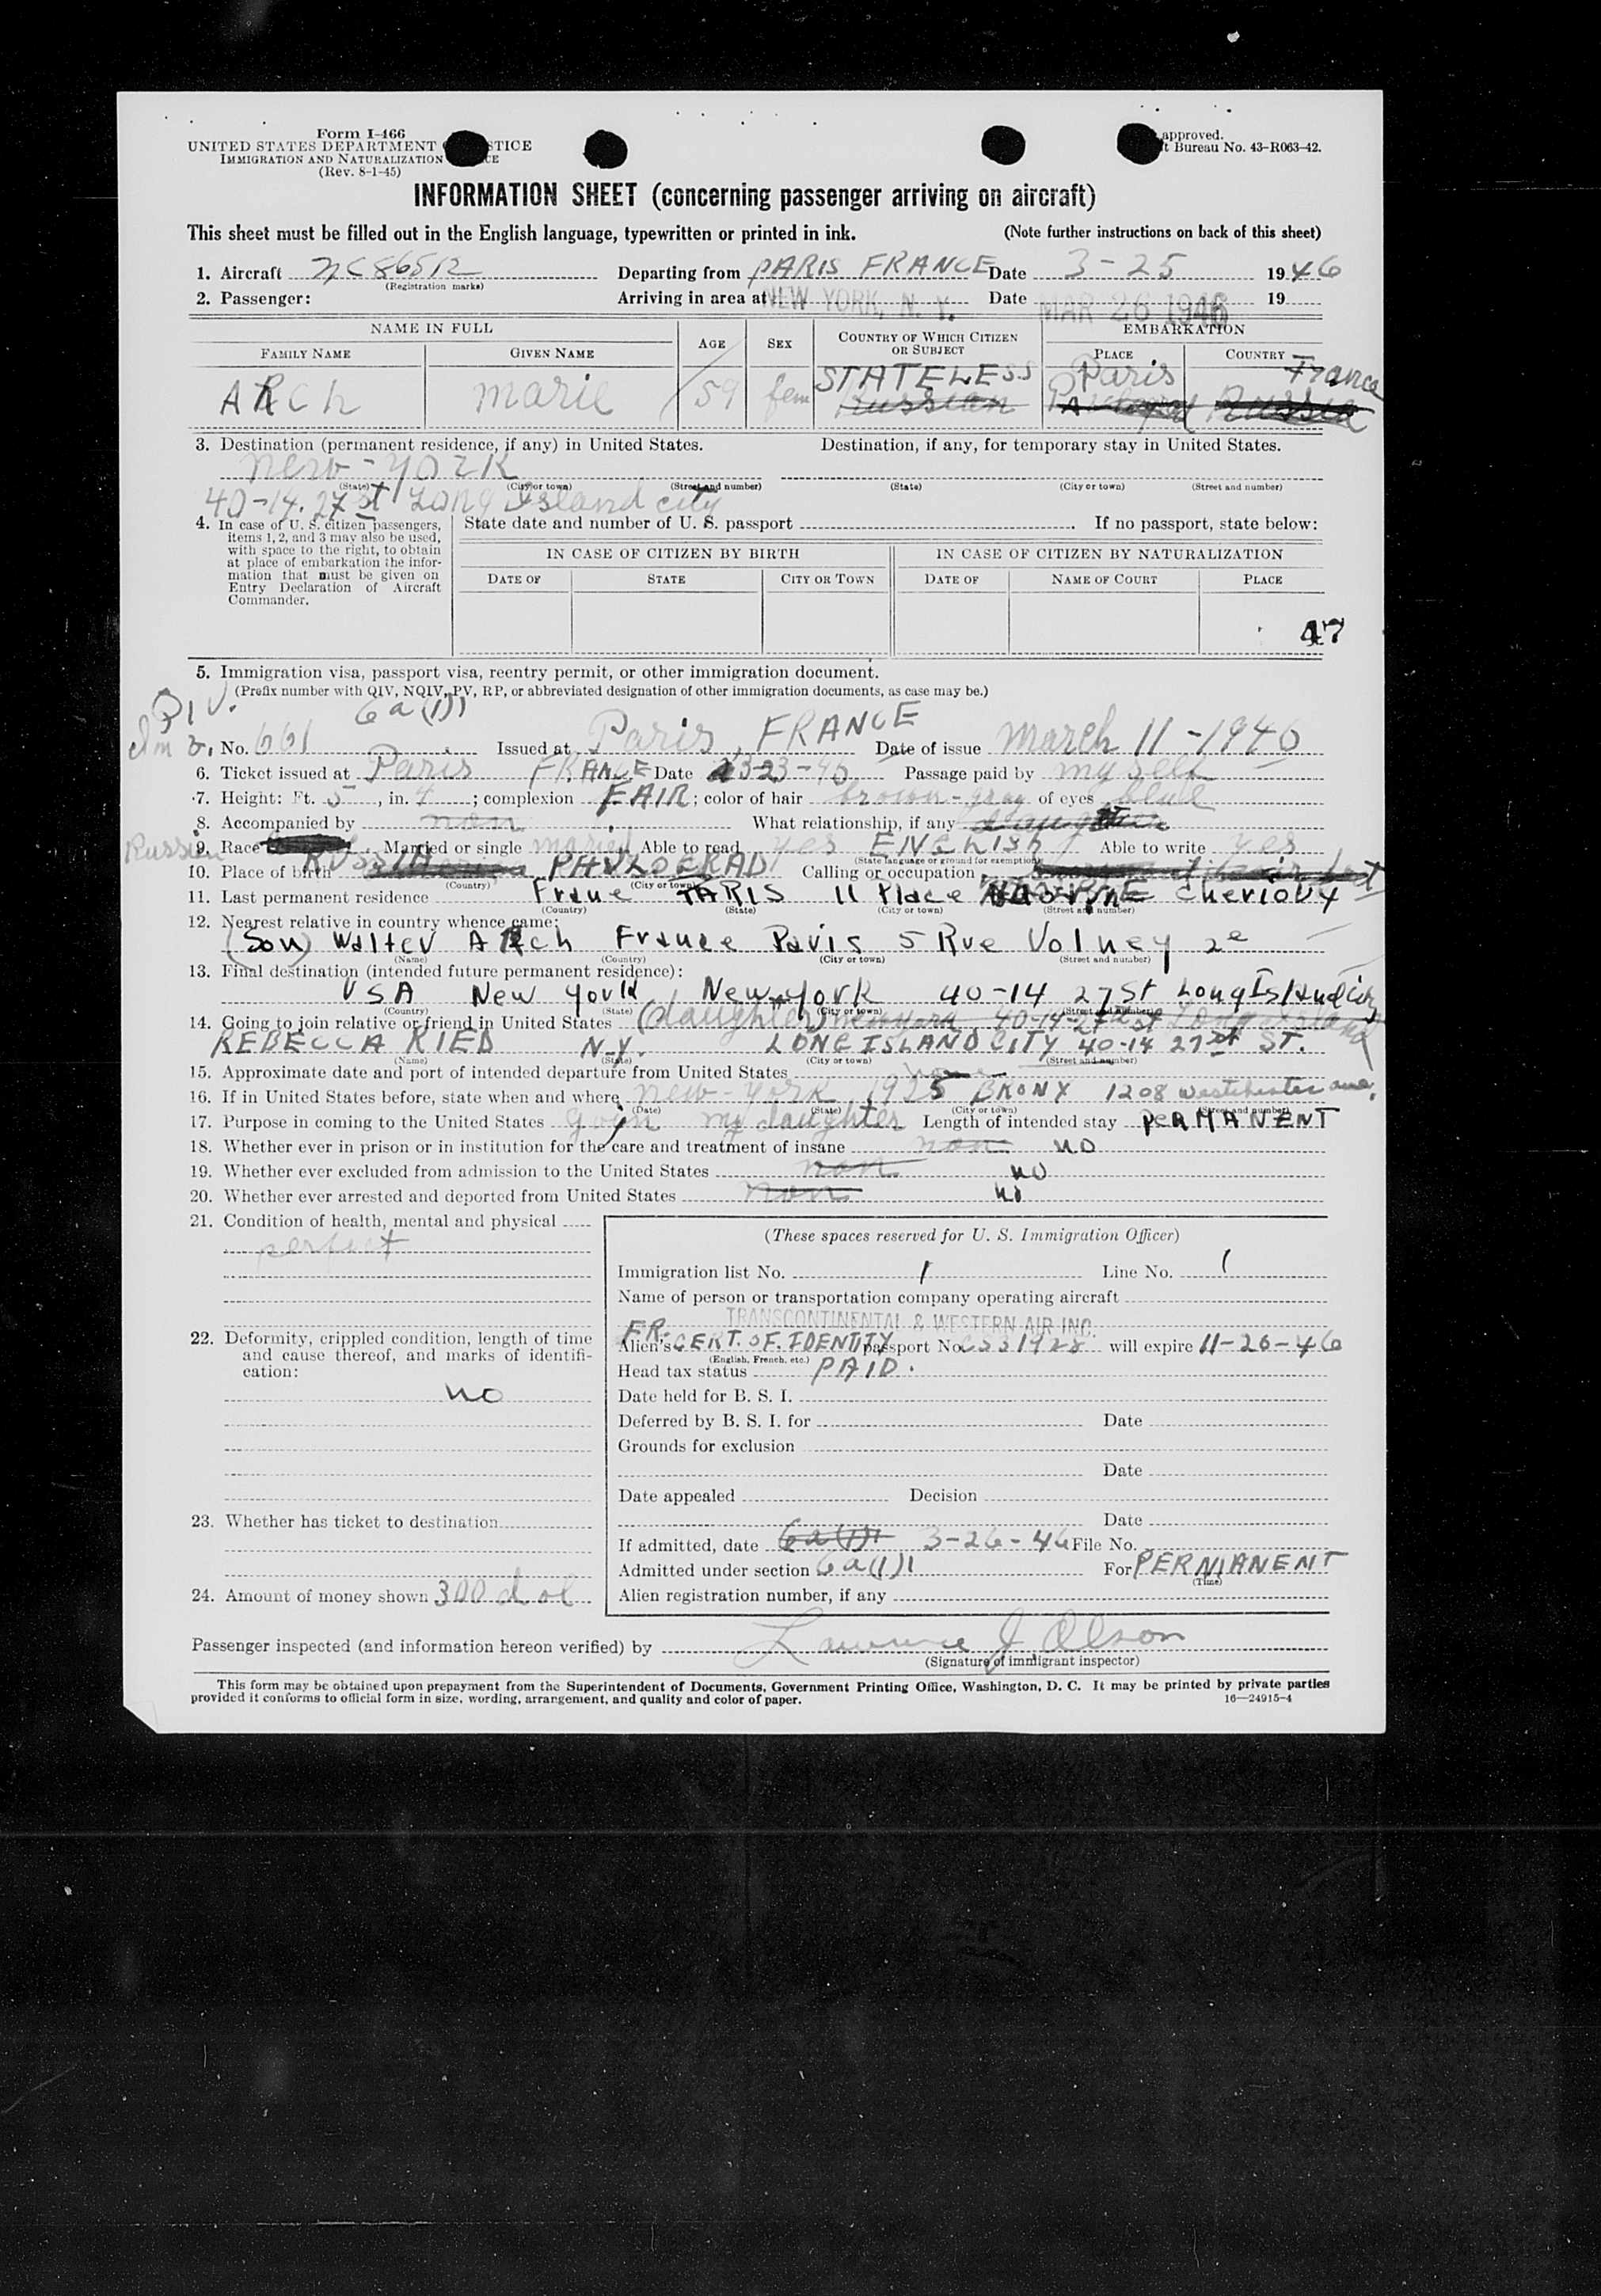 Form I-466
UNITED STATES DEPARTMENT STICE
IMMIGRATION AND NATURALIZATION CE
(Rev. 8-1-45)
approved.
t Bureau No. 43-R063-42.
INFORMATION SHEET (concerning passenger arriving on aircraft)
This sheet must be filled out in the English language, typewritten or printed in ink. (Note further instructions on back of this sheet)
1. Aircraft NC86512 Departing from PARIS FRANCE Date 3-25 1946
(Registration marks)
2. Passenger: Arriving in area at NEW YORK, N. Y. Date MAR 26 1946 19
NAME IN FULL AGE SEX COUNTRY OF WHICH CITIZEN OR SUBJECT EMBARKATION
FAMILY NAME GIVEN NAME PLACE COUNTRY
STATELESS Paris France
ARCh marie 59 fem Russian Russia
3. Destination (permanent residence, if any) in United States. Destination, if any, for temporary stay in United States.
New-York
(State) (City or town) (Street and number) (State) (City or town) (Street and number)
40-14. 27 st Long Island city
4. In case of U. S. citizen passengers, items 1, 2, and 3 may also be used, with space to the right, to obtain at place of embarkation the information that must be given on Entry Declaration of Aircraft Commander.
State date and number of U. S. passport If no passport, state below:
IN CASE OF CITIZEN BY BIRTH IN CASE OF CITIZEN BY NATURALIZATION
DATE OF STATE CITY OR TOWN DATE OF NAME OF COURT PLACE
47
5. Immigration visa, passport visa, reentry permit, or other immigration document.
(Prefix number with QIV, NQIV, PV, RP, or abbreviated designation of other immigration documents, as case may be.)
QIV. 6a(1)1
No. 661 Issued at Paris, FRANCE Date of issue march 11-1946
6. Ticket issued at Paris FRANCE Date 3-23-46 Passage paid by my self
7. Height: Ft. 5, in. 4; complexion FAIR; color of hair brown-gray of eyes blue
8. Accompanied by non What relationship, if any daughter
Russian
9. Race Married or single maried Able to read yes ENGLISH Able to write yes
(State language or ground for exemption)
10. Place of birth RUSSIA PAVLOGRAD Calling or occupation
(Country) (City or town)
11. Last permanent residence Frane PARIS 11 Place Cherioux
(Country) (State) (City or town) (Street and number)
12. Nearest relative in country whence came:
(Son) Walter ARch France Paris 5 Rue Volney 2e
(Name) (Country) (City or town) (Street and number)
13. Final destination (intended future permanent residence):
USA New York New-york 40-14 27 St Long Island City
(Country) (State) (City or town) (Street and number)
14. Going to join relative or friend in United States (daughter) New york 40-14-27 st Long island
REBECCA RIED N-Y. LONG ISLAND CITY 40-14 27 st ST.
(Name) (State) (City or town) (Street and number)
15. Approximate date and port of intended departure from United States
16. If in United States before, state when and where new-york 1925 BRONX 1208 Westchester ave.
(Date) (State) (City or town) (Street and number)
17. Purpose in coming to the United States goin my daughter Length of intended stay PERMANENT
18. Whether ever in prison or in institution for the care and treatment of insane non no
19. Whether ever excluded from admission to the United States non no
20. Whether ever arrested and deported from United States non no
21. Condition of health, mental and physical
perfect
22. Deformity, crippled condition, length of time and cause thereof, and marks of identification:
no
23. Whether has ticket to destination
24. Amount of money shown 300 dol
(These spaces reserved for U. S. Immigration Officer)
Immigration list No. 1 Line No. 1
Name of person or transportation company operating aircraft
TRANSCONTINENTAL & WESTERN AIR INC.
FR.
Alien's CERT. OF. IDENTITY passport No. will expire 11-26-46
(English, French, etc.)
Head tax status PAID.
Date held for B. S. I.
Deferred by B. S. I. for Date
Grounds for exclusion
Date
Date appealed Decision
Date
If admitted, date 6a(1)1 3-26-46 File No.
Admitted under section 6a(1)1 For PERMANENT
(Time)
Alien registration number, if any
Passenger inspected (and information hereon verified) by Lawrence J Olson
(Signature of immigrant inspector)
This form may be obtained upon prepayment from the Superintendent of Documents, Government Printing Office, Washington, D. C. It may be printed by private parties
provided it conforms to official form in size, wording, arrangement, and quality and color of paper. 16—24915-4